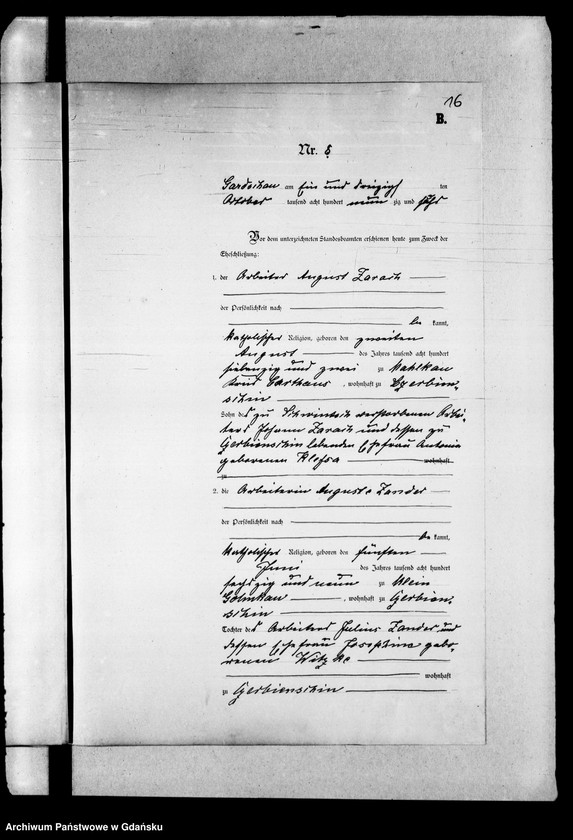 16
B.
Nr. 8
Gardschau am Ein und dreizigsten
Oktober tausend acht hundert neun zig und sechs
Vor dem unterzeichneten Standesbeamten erschienen heute zum Zweck der
Eheschließung:
1. der Arbeiter August Zarach
der Persönlichkeit nach
be kannt,
katholischer Religion, geboren den zweiten
August des Jahres tausend acht hundert
siebenzig und zwei zu Mahlkau
Kreis Carthaus, wohnhaft zu Czerbien-
schin
Sohn des zu Schwintsch verstorbenen Arbei-
ters Johann Zarach und dessen zu
Czerbienschin lebenden Ehefrau Antonie
geborenen wohnhaft
zu
2. die Arbeiterin Auguste Zander
der Persönlichkeit nach
be kannt,
katholischer Religion, geboren den fünften
Juni des Jahres tausend acht hundert
sechszig und neun zu Klein
Golmkau, wohnhaft zu Czerbien-
schin
Tochter des Arbeiters Julius Zander und
dessen Ehefrau Josephine gebo-
renen Witzke
wohnhaft
zu Czerbienschin
Archiwum Państwowe w Gdańsku